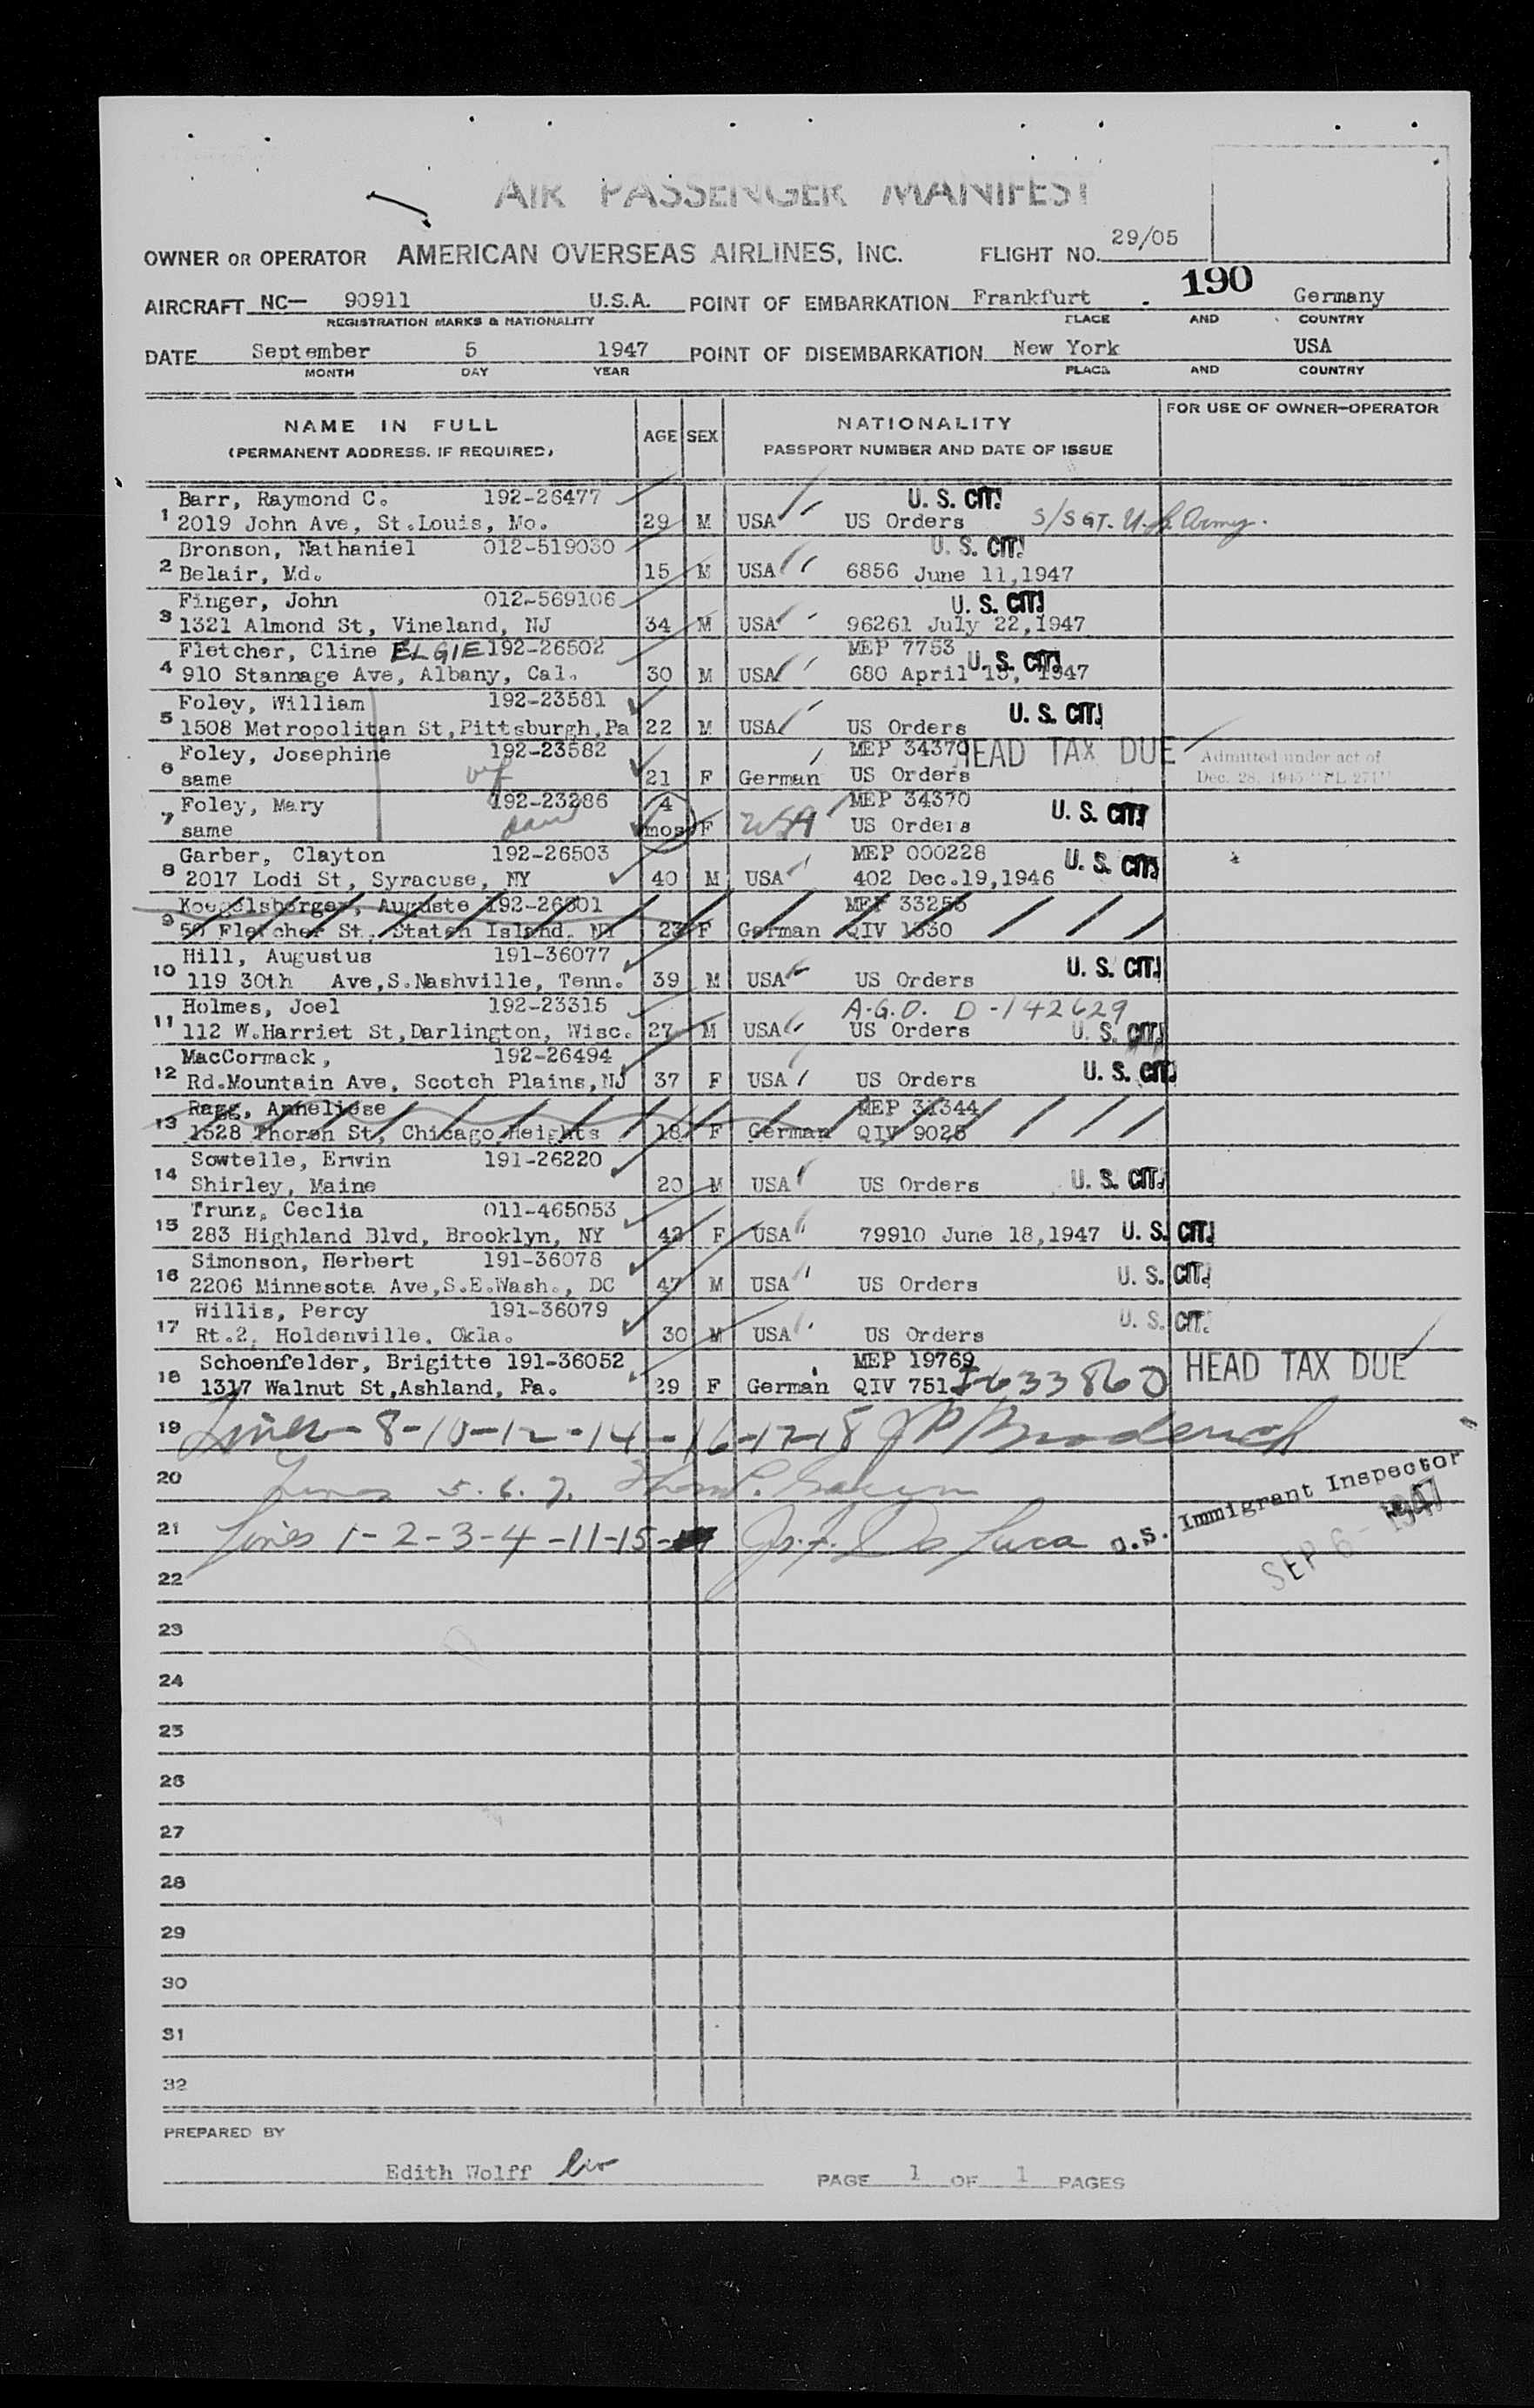 AIR PASSENGER MANIFEST
OWNER OR OPERATOR AMERICAN OVERSEAS AIRLINES, INC. FLIGHT NO. 29/05
190
AIRCRAFT NC— 90911 U.S.A. POINT OF EMBARKATION Frankfurt Germany
REGISTRATION MARKS & NATIONALITY PLACE AND COUNTRY
DATE September 5 1947 POINT OF DISEMBARKATION New York USA
MONTH DAY YEAR PLACE AND COUNTRY
NAME IN FULL AGE SEX NATIONALITY FOR USE OF OWNER-OPERATOR
(PERMANENT ADDRESS, IF REQUIRED) PASSPORT NUMBER AND DATE OF ISSUE
Barr, Raymond C. 192-26477 U. S. CIT.
1 2019 John Ave, St.Louis, Mo. 29 M USA US Orders S/SGT. U.S. Army.
Bronson, Nathaniel 012-519030 U. S. CIT.
2 Belair, Md. 15 M USA 6856 June 11,1947
Finger, John 012-569106 U. S. CIT.
3 1321 Almond St, Vineland, NJ 34 M USA 96261 July 22,1947
Fletcher, Cline ELGIE 192-26502 MEP 7753 U. S. CIT.
4 910 Stannage Ave, Albany, Cal. 30 M USA 680 April 15, 1947
Foley, William 192-23581 U. S. CIT.
5 1508 Metropolitan St,Pittsburgh,Pa 22 M USA US Orders
Foley, Josephine 192-23582 MEP 34370 HEAD TAX DUE Admitted under act of
6 same wf 21 F German US Orders Dec. 28, 1945 "PL 271"
Foley, Mary 192-23286 4 MEP 34370 U. S. CIT.
7 same mos F USA US Orders
Garber, Clayton 192-26503 MEP 000228 U. S. CIT.
8 2017 Lodi St, Syracuse, NY 40 M USA 402 Dec.19,1946
Koegelsberger, Auguste 192-26501 MEP 33256
9 50 Fletcher St, Staten Island, NY 23 F German QIV 1330
Hill, Augustus 191-36077 U. S. CIT.
10 119 30th Ave,S.Nashville, Tenn. 39 M USA US Orders
Holmes, Joel 192-23315 A.G.O. D-142629
11 112 W.Harriet St,Darlington, Wisc. 27 M USA US Orders U. S. CIT.
MacCormack, 192-26494 U. S. CIT.
12 Rd.Mountain Ave, Scotch Plains,NJ 37 F USA US Orders
Ragg, Anneliese MEP 31344
13 1528 Thoren St, Chicago Heights 18 F German QIV 9026
Sowtelle, Erwin 191-26220 U. S. CIT.
14 Shirley, Maine 20 M USA US Orders
Trunz, Ceclia 011-465053
15 283 Highland Blvd, Brooklyn, NY 42 F USA 79910 June 18,1947 U. S. CIT.
Simonson, Herbert 191-36078
16 2206 Minnesota Ave,S.E.Wash., DC 47 M USA US Orders U. S. CIT.
Willis, Percy 191-36079 U. S. CIT.
17 Rt.2, Holdenville, Okla. 30 M USA US Orders
Schoenfelder, Brigitte 191-36052 MEP 19769 HEAD TAX DUE
18 1317 Walnut St,Ashland, Pa. 29 F German QIV 751 I-633860
19 Lines - 8-10-12-14-16-17-18 JP Broderick
20 Lines 5. 6. 7.
21 Lines 1-2-3-4-11-15- Jos. F. De Luca U.S. Immigrant Inspector
SEP 6 - 1947
22
23
24
25
26
27
28
29
30
31
32
PREPARED BY
Edith Wolff PAGE 1 OF 1 PAGES